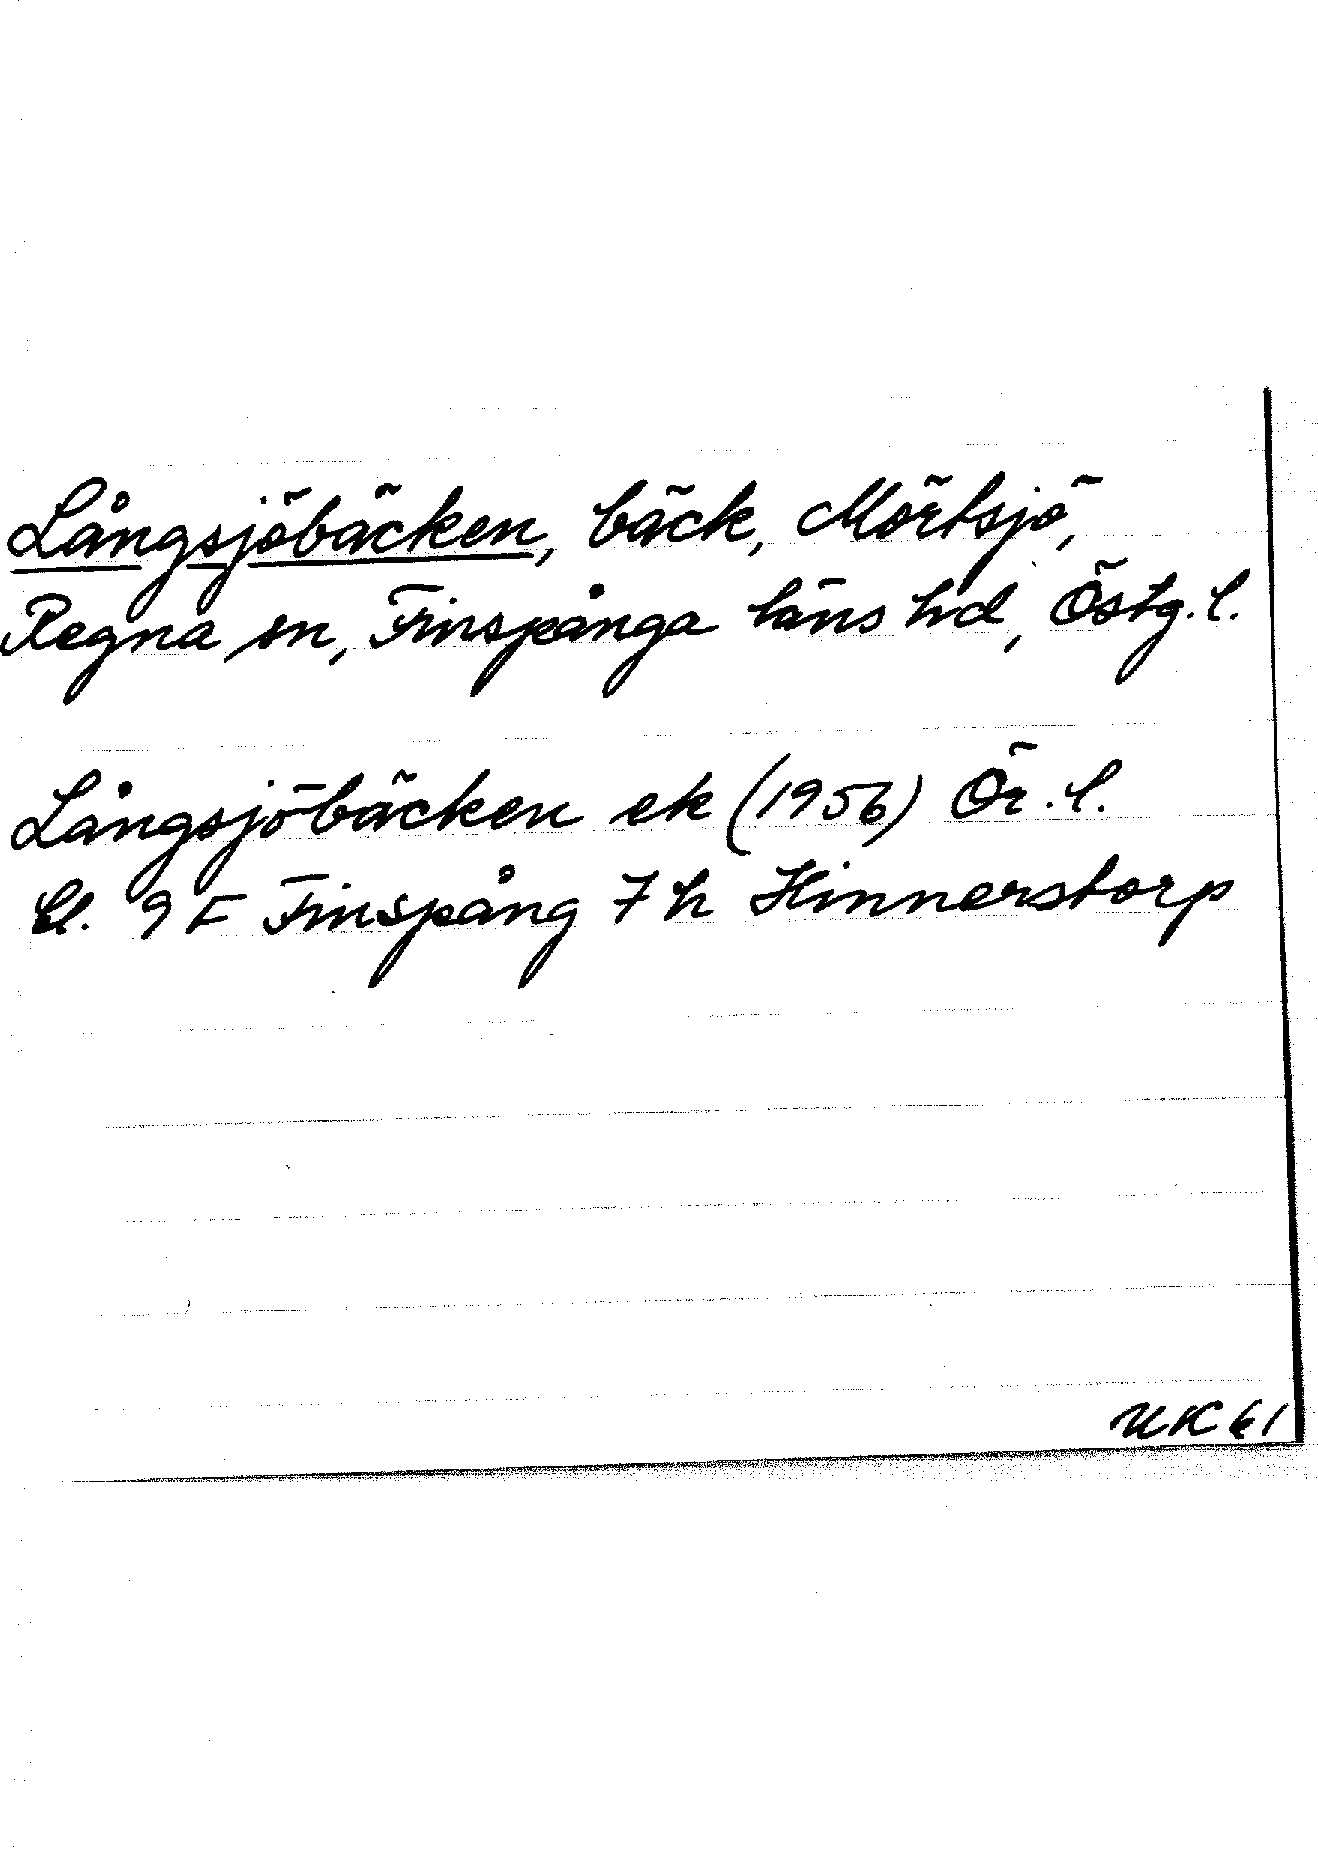 Långsjöbäcken, bäck, Mörtsjö,
Regna sn, Finspånga läns hd, Östg. l.
Långsjöbäcken ek (1956) Ör. l.
bl. 9 F Finspång 7 h Hinnerstorp
UK 61